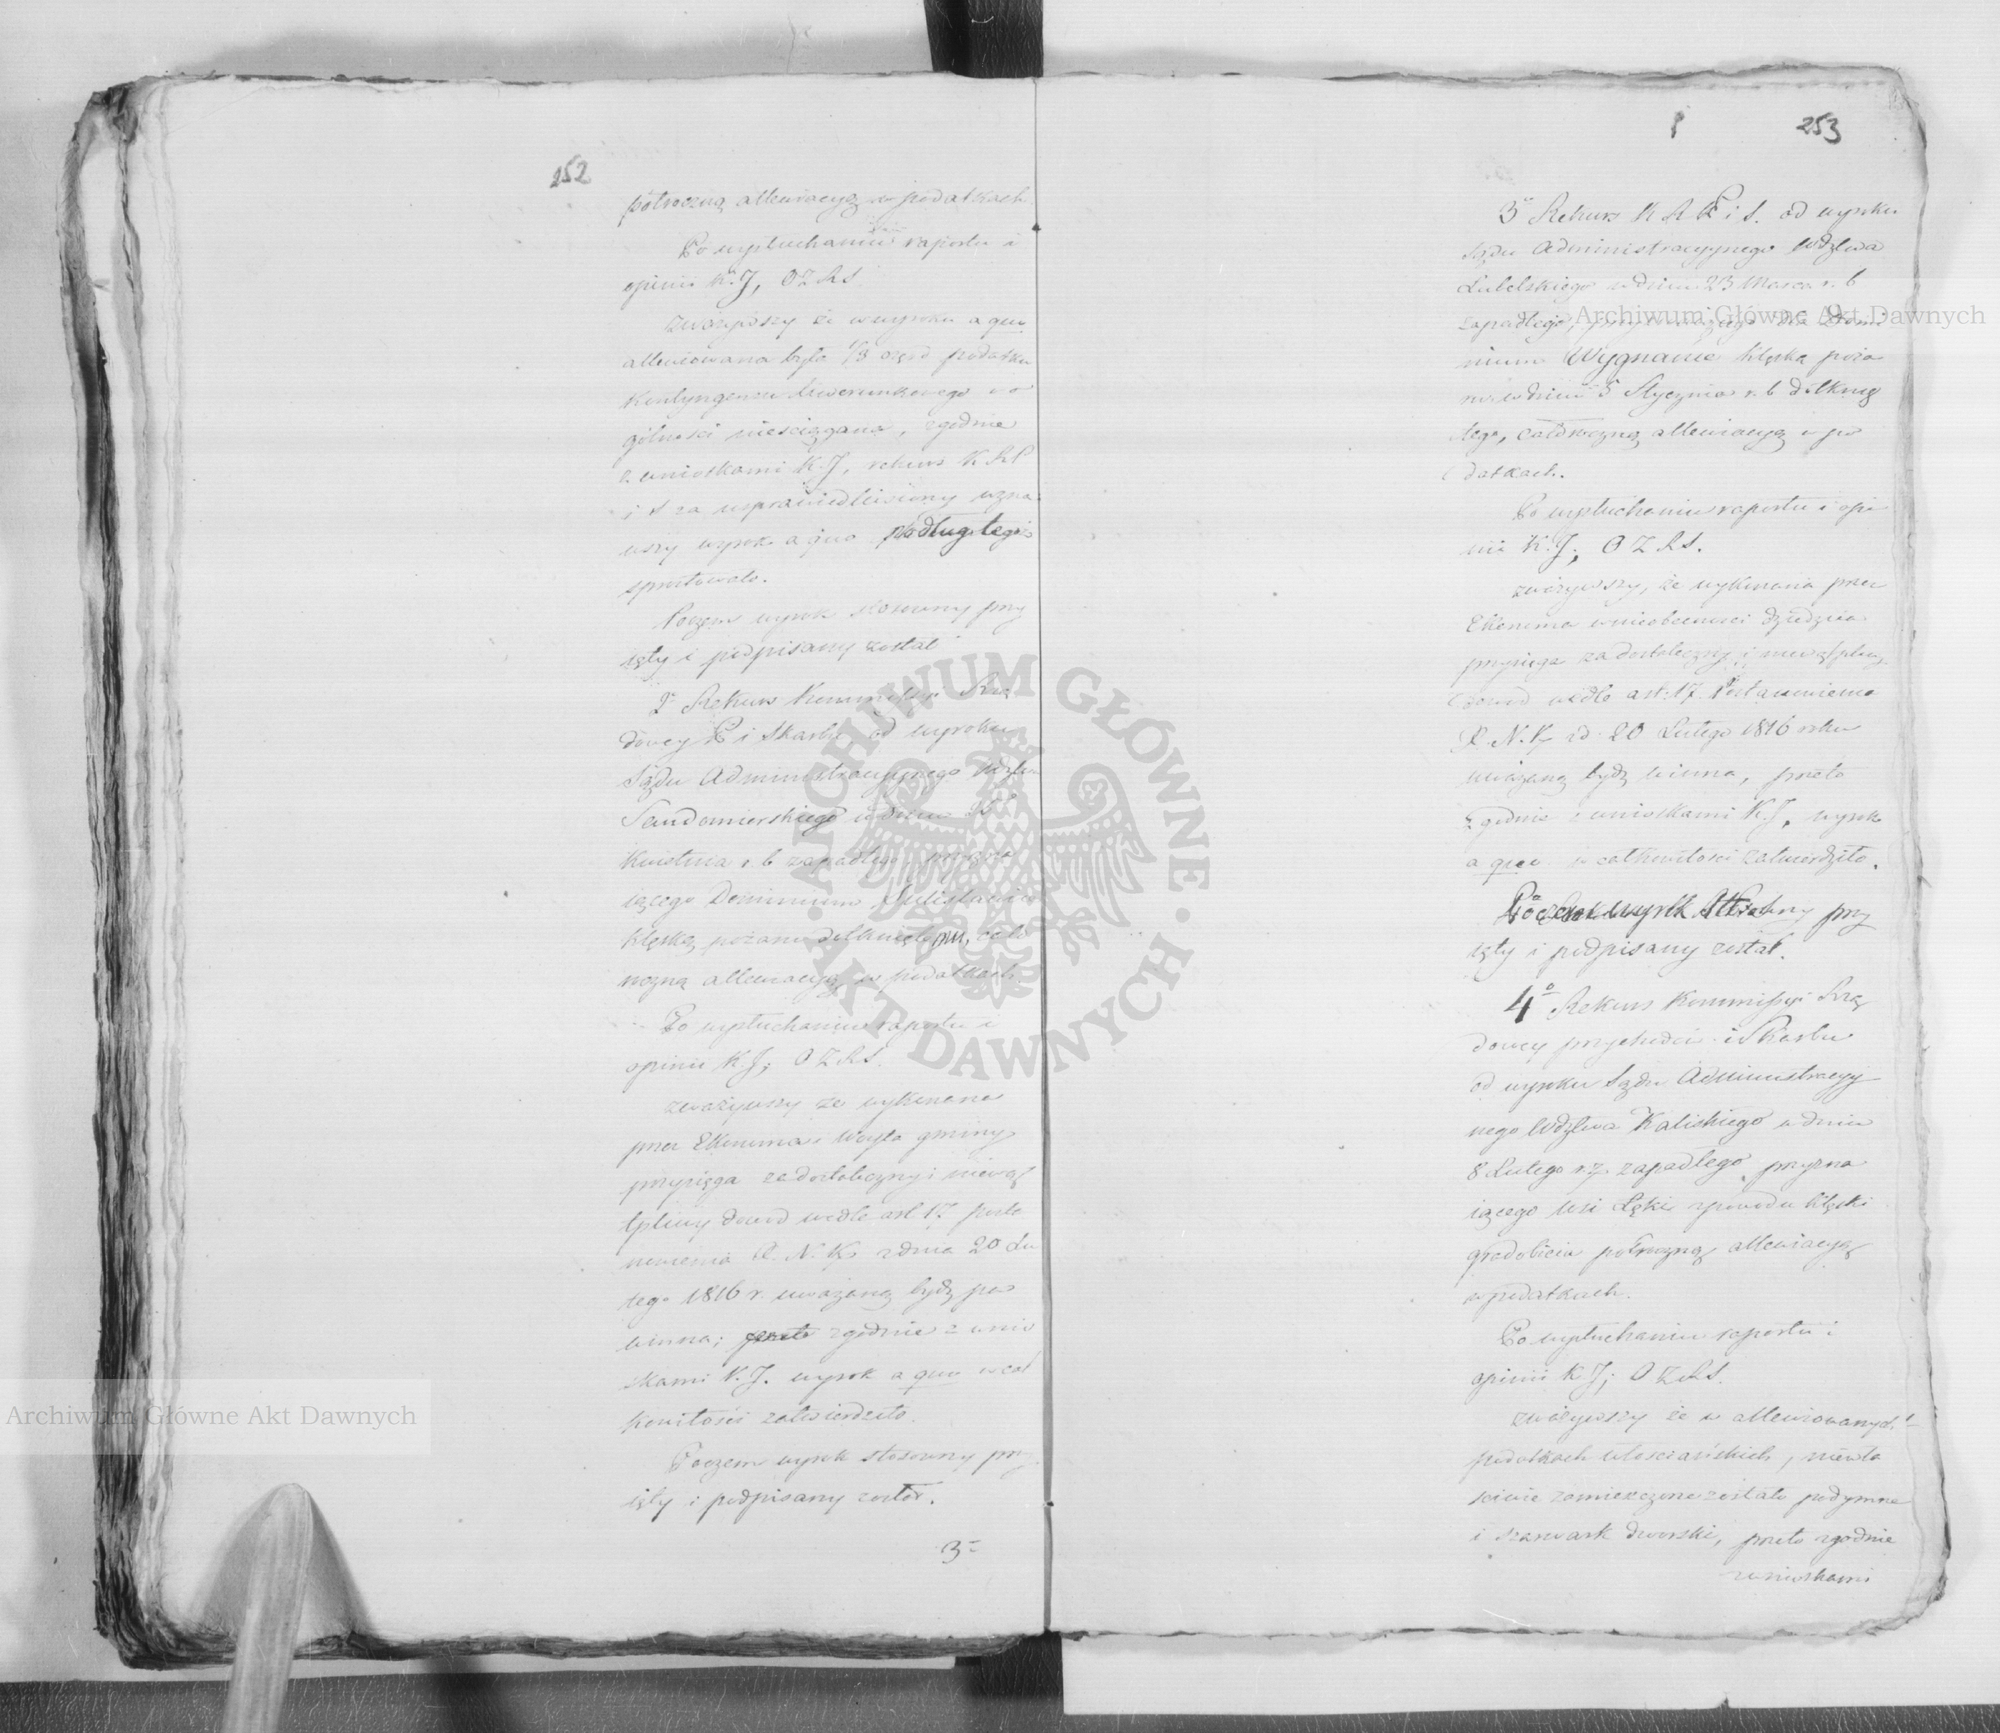 252
półroczną allewiacyą w podatkach.
Po wysłuchaniu raportu i
opinii K. J, O Z R S.
zważywszy że w wyroku a quo
allewiowana była 1/3 część podatku
Kontyngensu liwerunkowego w o
gólności nieściągana, zgodnie
z wnioskami K. J, rekurs K R P
i S za usprawiedliwiony uzna
wszy wyrok a quo podług tego
sprostowało.
Poczem wyrok stosowny przy
ięty i podpisany został
2° Rekurs Kommissyi Rzą
dowey P i Skarbu od wyroku
Sądu Administracyynego Wdztwa
Sandomierskiego w dniu
Kwietnia r. b zapadłego, przyzna
iącego Dominium
klęską pożaru dotkniętemu, cało
roczną allewiacyą w podatkach.
Po wysłuchaniu raportu i
opinii K J; O Z R S.
zważywszy że wykonana
przez Ekonoma i Woyta gminy
przysięga za dostateczny i niewą
tpliwy dowod wedle art 17 posta
nowienia R. N. K. z dnia 20 Lu
tego 1816 r. uważaną bydź po
winna; przeto zgodnie z wnio
skami K. J. wyrok a quo w cał
kowitości zatwierdziło.
Poczem wyrok stosowny przy
ięty i podpisany został.
3°
253
3° Rekurs K R P i S. od wyroku
Sądu Administracyynego Wdztwa
Lubelskiego w dniu 23 Marca r. b
zapadłego, przyznaiącego dla Domi
nium Wygnanie klęską poża
ru w dniu 5 Stycznia r. b dotknię
tego, całoroczną allewiacyą w po
datkach.
Po wysłuchaniu raportu i opi
nii K. J; O Z R S.
zważywszy, że wykonana przez
Ekonoma w nieobecności dziedzica
przysięga za dostateczny i niewątpliwy
dowod wedle art. 17. Postanowienia
R. N. K. z d. 20 Lutego 1816 roku
uważaną bydź winna, przeto
zgodnie z wnioskami K. J, wyrok
a quo w całkowitości zatwierdziło.
Poczem wyrok stosowny przy
ięty i podpisany został.
4° Rekurs Kommissyi Rzą
dowey przychodów i Skarbu
od wyroku Sądu Administracyy
nego Wdztwa Kaliskiego w dniu
8 Lutego r. z. zapadłego, przyzna
iącego wsi Łęki z powodu klęski
gradobicia półroczną allewiacyą
w podatkach.
Po wysłuchaniu raportu i
opinii K J; O Z R S.
zważywszy że w allewiowanych
podatkach włościańskich, niewła
ściwie zamieszczone zostało podymne
i szarwark dworski, przeto zgodnie
z wnioskami
Archiwum Główne Akt Dawnych
Archiwum Główne Akt Dawnych
ARCHIWUM GŁÓWNE · AKT DAWNYCH ·